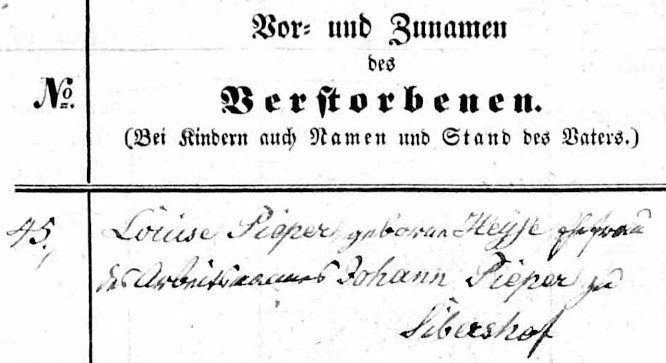 Vor- und Zunamen
des
Verstorbenen.
(Bei Kindern auch Namen und Stand des Vaters.)
No.
45.
Louise Pieper, geboren Heyse Ehefrau
des Arbeitsmannes Johann Pieper zu
Sibershof